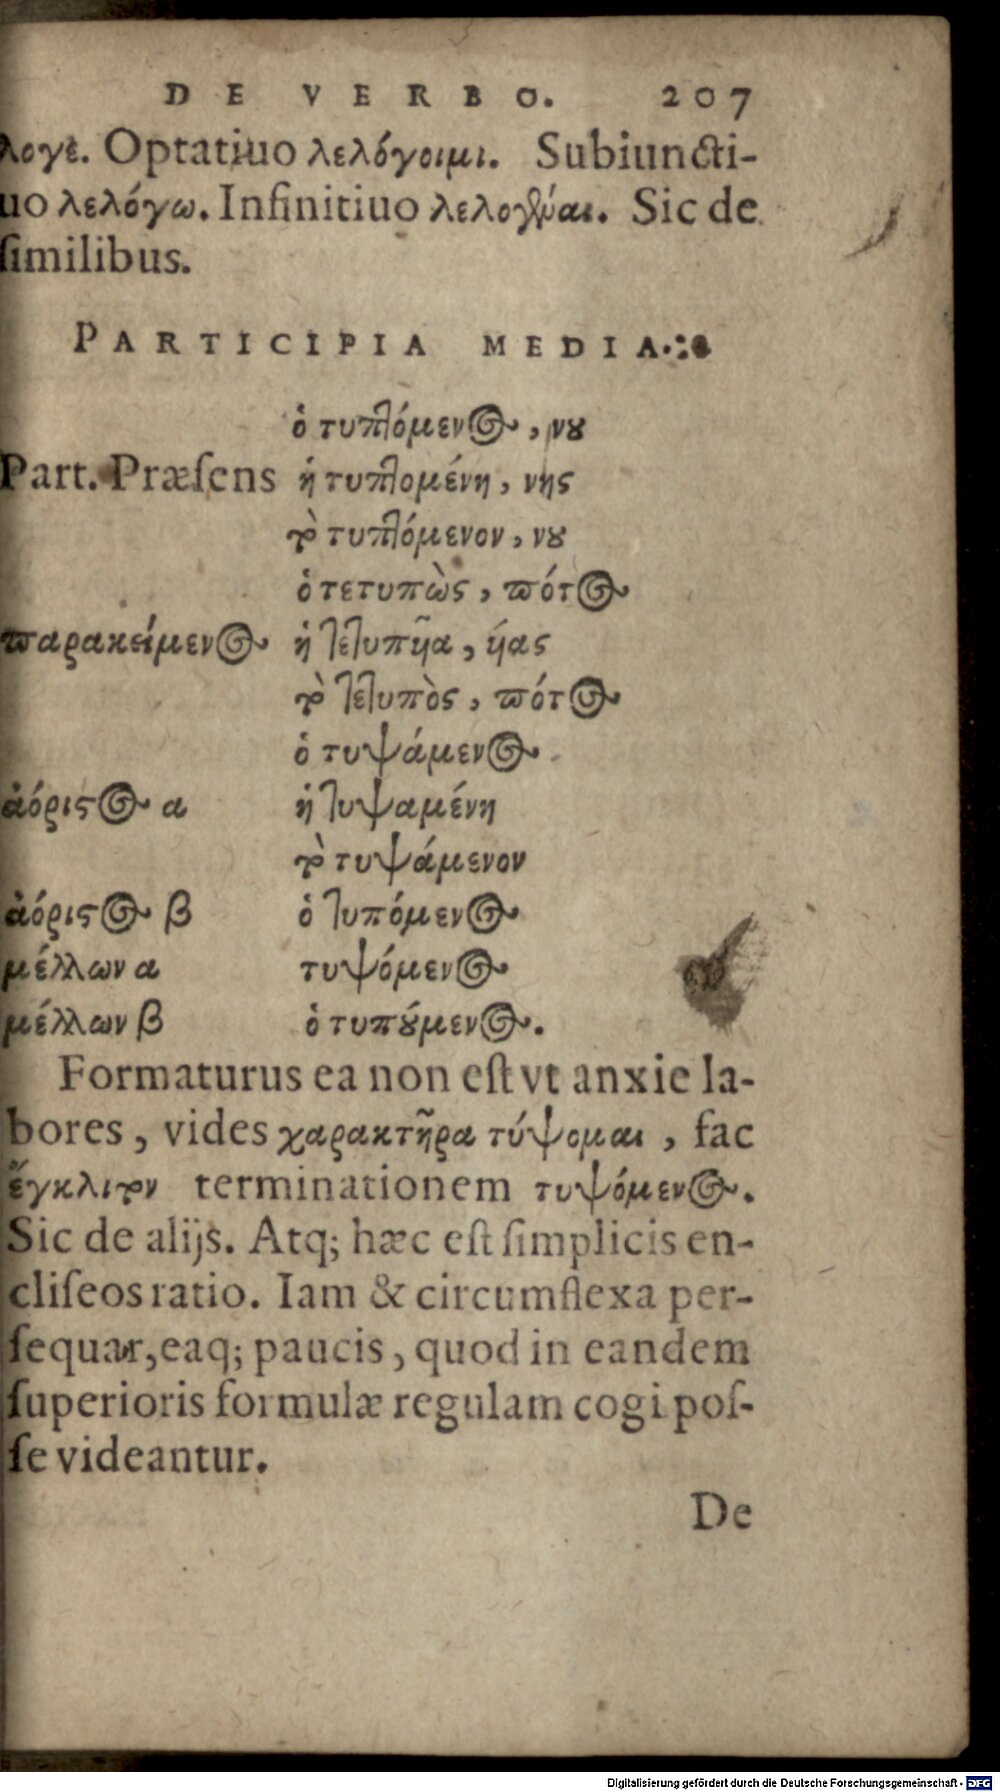 DE VERBO. 207
λογε. Optatiuo λελόγοιμι. Subiuncti-
uo λελόγω. Infinitiuo λελογέναι. Sic de
ſimilibus.
PARTICIPIA MEDIA.
ὁ τυπτόμενος, νου
Part. Præſens ἡ τυπτομένη, νης
τὸ τυπτόμενον, νου
ὁ τετυπὼς, πότος
παρακείμενος ἡ τετυπῆα, ήας
τὸ τετυπὸς, πότος
ὁ τυψάμενος.
ἀόριστος α ἡ τυψαμένη
τὸ τυψάμενον
ἀόριστος β ὁ τυπόμενος
μέλλων α τυψόμενος
μέλλων β ὁ τυπούμενος.
Formaturus ea non eſt vt anxie la-
bores, vides χαρακτῆρα τύψομαι, fac
ἔγκλιτον terminationem τυψόμενος.
Sic de alijs. Atq; hæc eſt ſimplicis en-
cliſeos ratio. Iam & circumflexa per-
ſequar, eaq; paucis, quod in eandem
ſuperioris formulæ regulam cogi poſ-
ſe videantur.
De
Digitalisierung gefördert durch die Deutsche Forschungsgemeinschaft - DFG